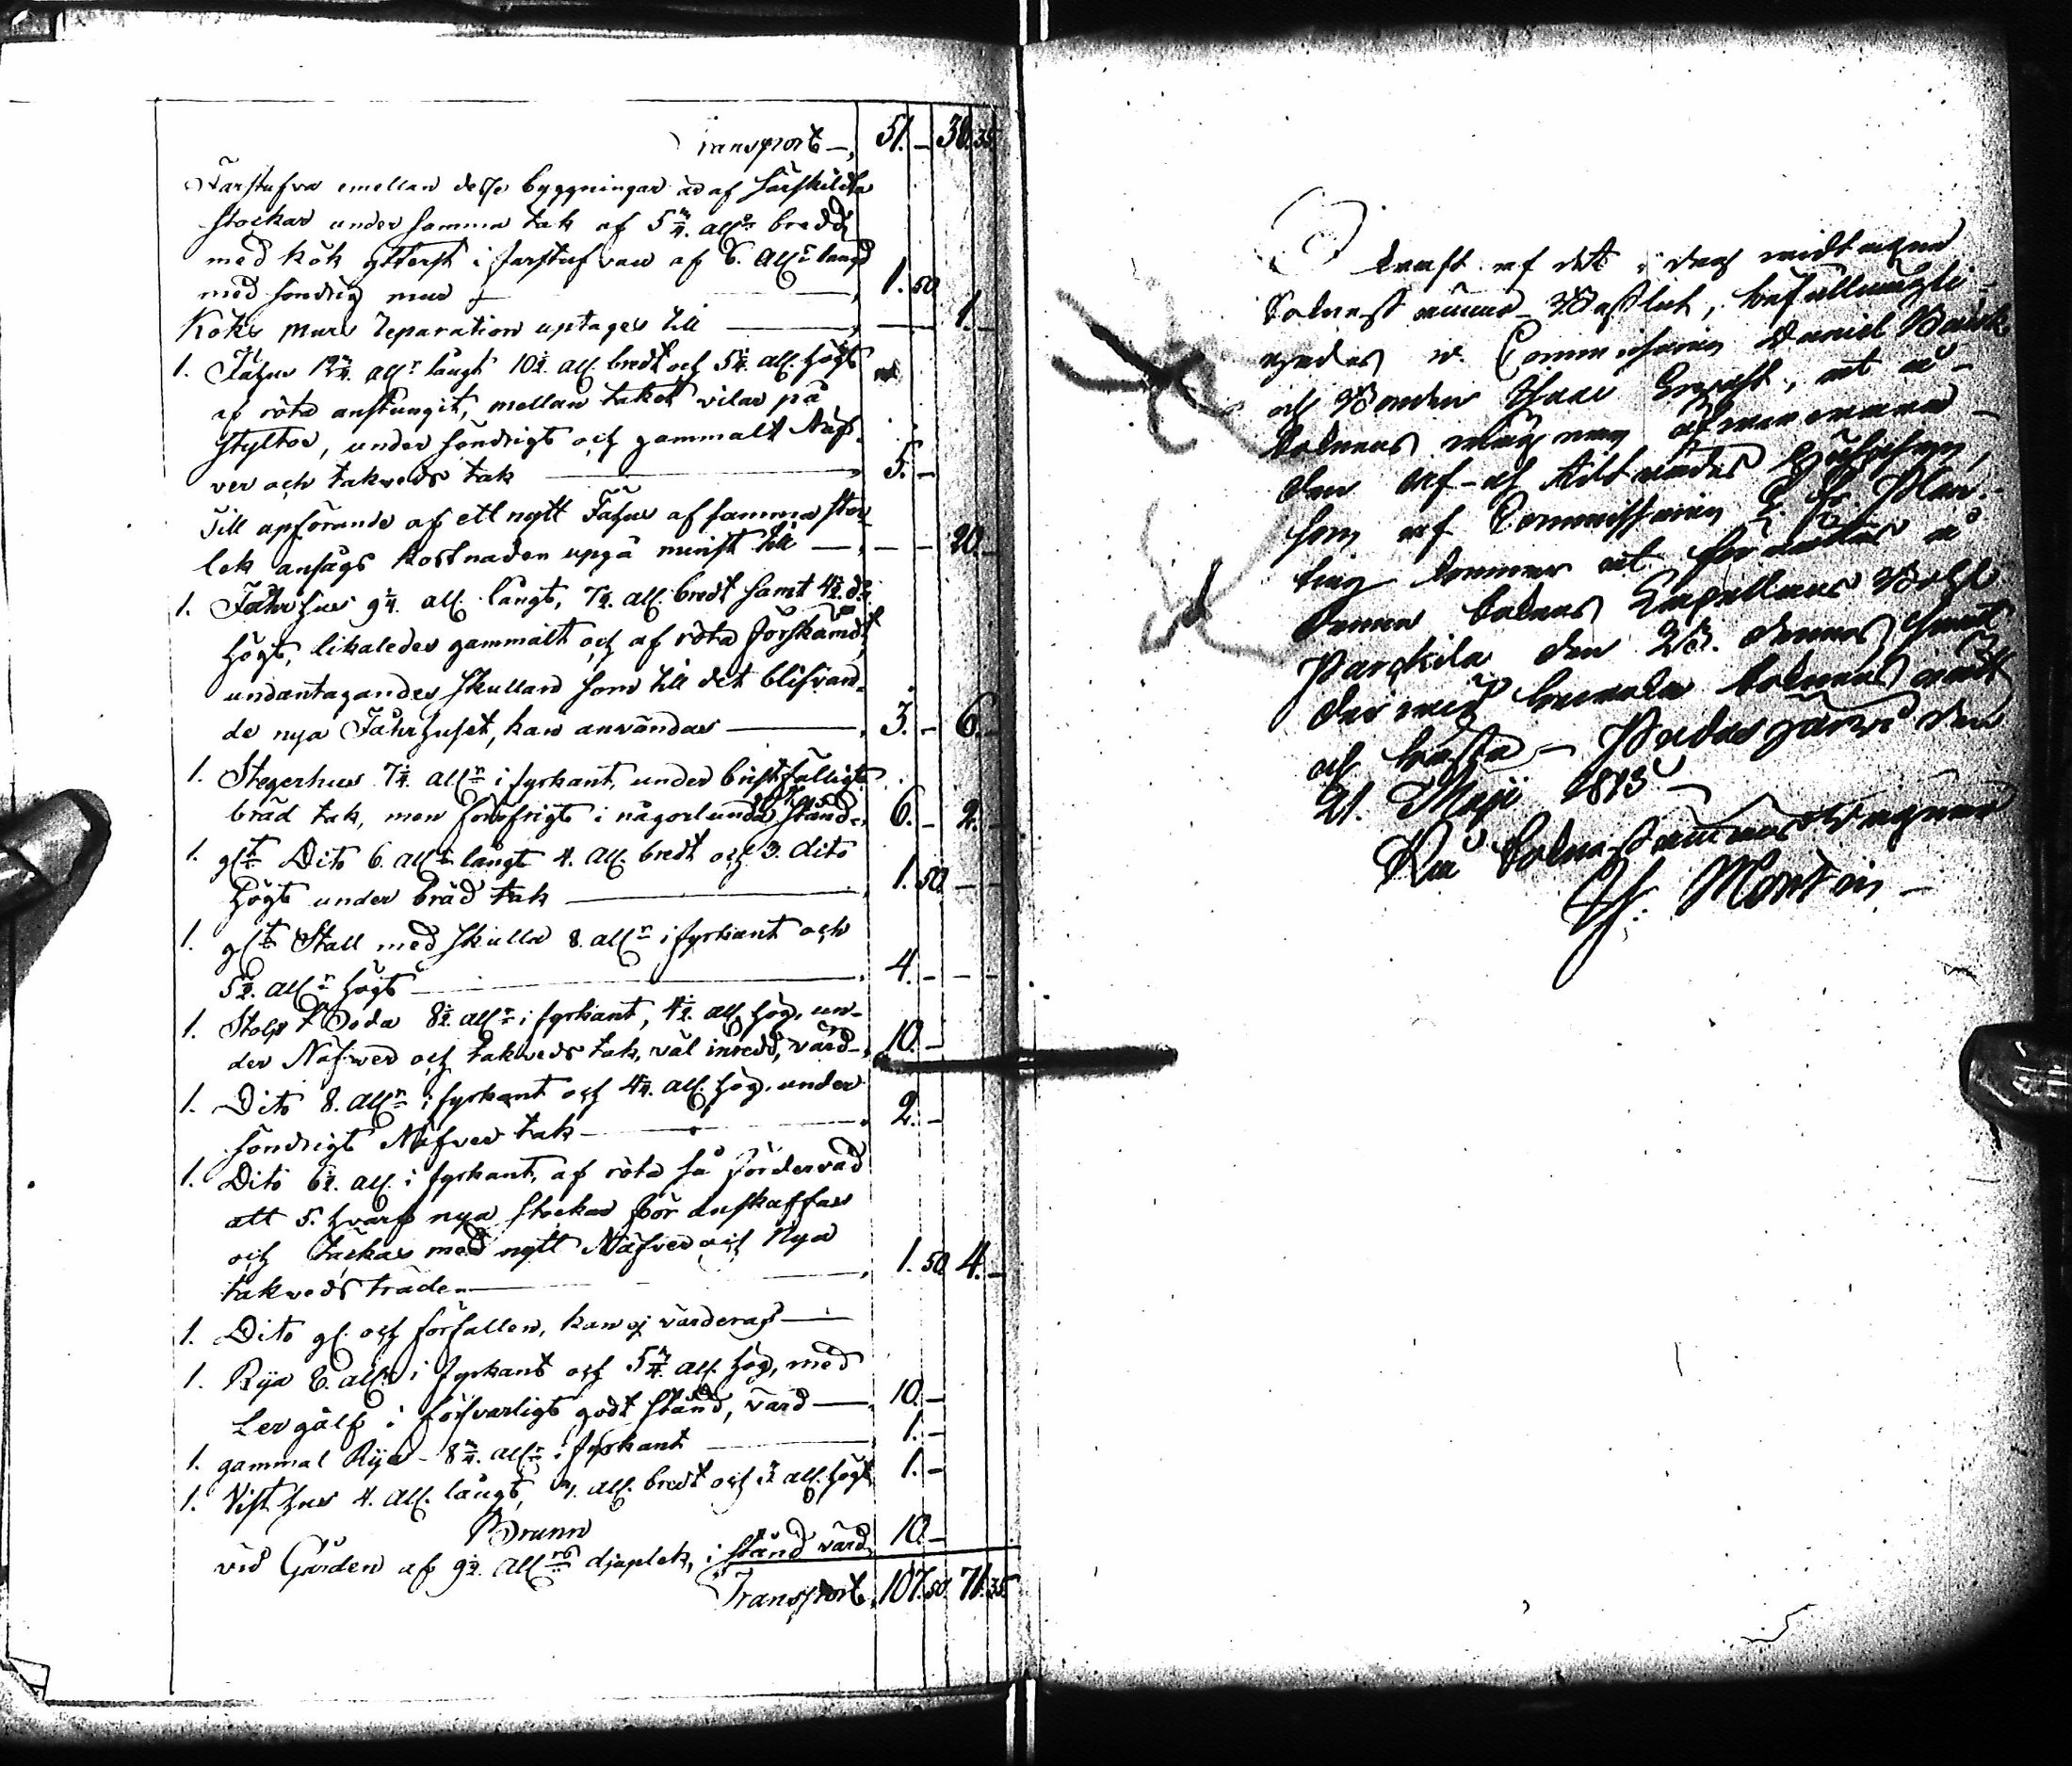 Transport — 51. — 38. 35
Farstufva emellan desse byggningar är af särskildta
stockar under samma tak af 5 3/4 alln bredd
med kök ytterst i farstufvan af 6. alln längd
med söndrig mur — 1. 50
Köks murs reparation uptages till — 1. —
1. Fähus 12 3/4 alln långt 10 1/2 all. bredt och 5 1/4 all. högt
af röta anstungit, mellan taket vilar på
styltor, under söndrigt och gammalt Näf-
ver och takveds tak — 5. —
Till upförande af ett nytt Fähus af samma stor-
lek ansågs kostnaden upgå minst till — 20. —
1. Fåhrhus 9 1/4 all. långt, 7 1/2 all. bredt samt 4 1/2 do
högt, likaledes gammalt och af röta förskämdt,
undantagandes skullarn som till det blifvan-
de nya Fåhrhuset, kan användas — 3. — 6. —
1. Stegerhus 7 1/4 alln i fyrkant, under bristfälligt
bräd tak, men för öfrigt i någorlunda stånd. 6. — 2. —
1. glt Dito 6. alln långt 4. all. bredt och 3. dito
högt under bräd tak — 1. 50 — —
1. glt Stall med skulla 8. alln i fyrkant och
5 1/2 alln högt — 4. — — —
1. Stolp Boda 8 1/2 alln i fyrkant, 4 1/2 all. hög, un-
der Näfver och takveds tak, väl inredd, värd — 10. —
1. Dito 8. alln i fyrkant och 4 3/4 all. hög, under
söndrigt Näfver tak — 2. —
1. Dito 6 1/2 all. i fyrkant, af röta så fördervad
att 5. hvarf nya stockar bör anskaffas
och täckas med nytt Näfver och Nya
takveds träden — 1. 50 4. —
1. Dito gl. och förfallen, kan ej värderas —
1. Rija 8. alln i fyrkant och 5 3/4 all. hög, med
Lergålf i försvarligt godt stånd, värd — 10. —
1. gammal Rija — 8 3/4 alln i fyrkant — 1. —
1. Visthus 4. all. långt, 4. all. bredt och 3 all. högt 1. —
Brunn
vid Gården af 9 1/2 allns djuplek, i stånd värd 10. —
Transport 107. 50 71. 35
I kraft af det i dag vidtagne
Sokneståmmo Beslut, befullmägti-
gades v. Commissarien Daniel
och Bonden att å
Soknens vägnar
den Af- och Tilträdes Husesyn,
som af Commissarien
kommer at förrättas å
denna Soknens Capellans Bohl
Parkila den 28. dennes samt
der vid bevaka Soknens rätt
och bästa — Pudasjärvi den
21. Maji 1813 —
På Sokneståmmans Vägnar